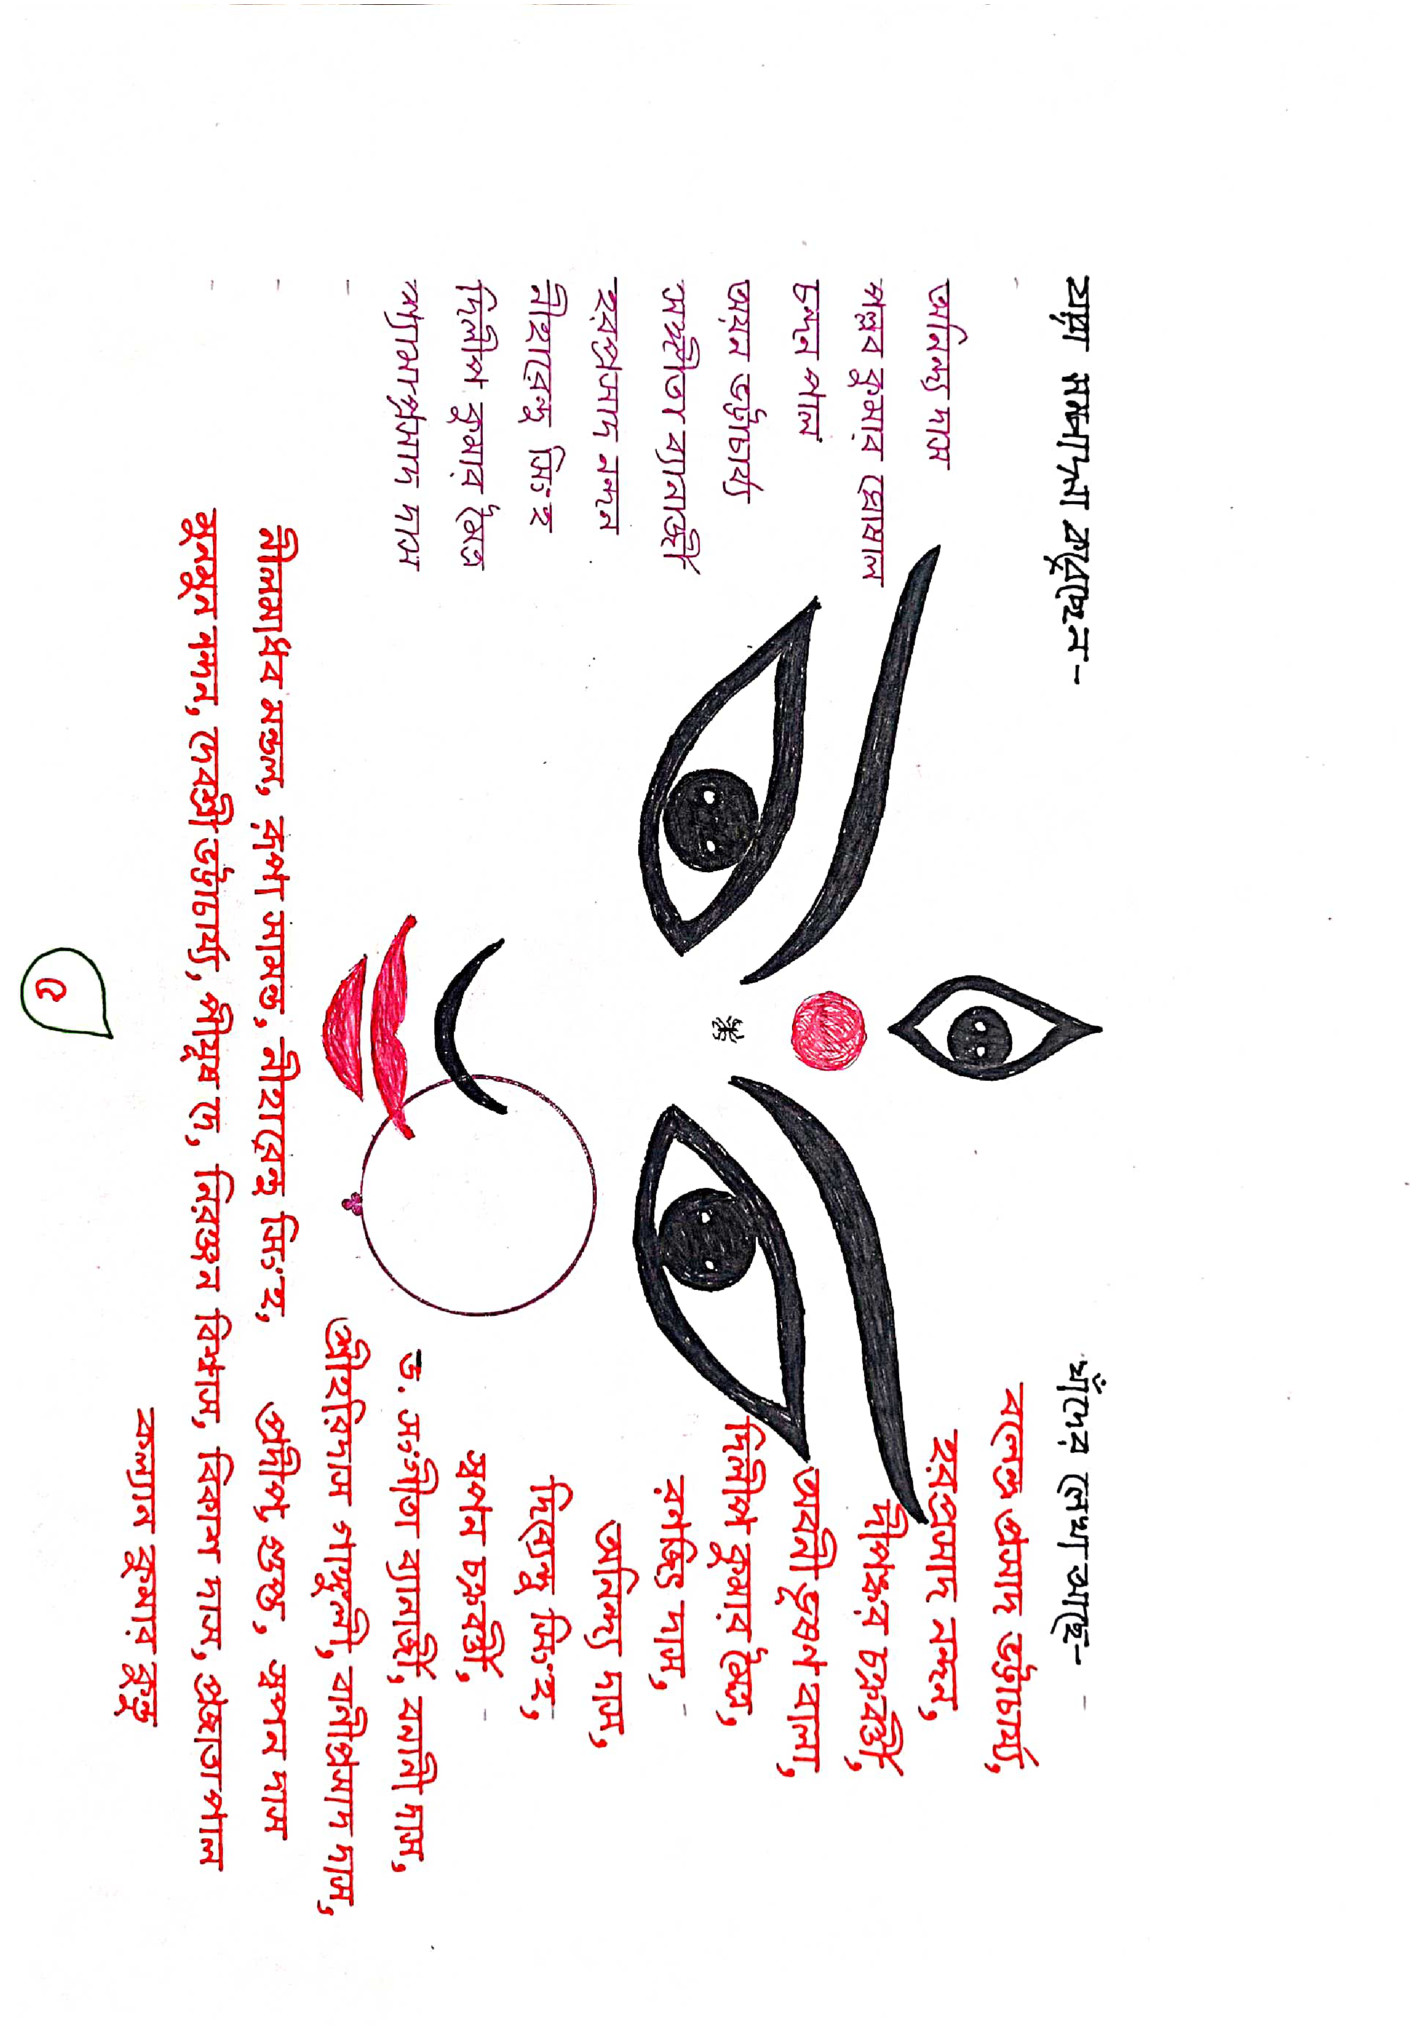 যারা সম্পাদনা করেছেন-
অনিন্দ্য দাস
পল্লব কুমার ঘোষাল
চন্দন পাল
অয়ন ভট্টাচার্য্য
সংগীতা ব্যানার্জী
হরপ্রসাদ নন্দন
নীহারেন্দু সিংহ
দিলীপ কুমার মৈত্র
শ্যামাপ্রসাদ দাস
যাঁদের লেখা আছে-
বলেন্দ্র প্রসাদ ভট্টাচার্য্য,
হরপ্রসাদ নন্দন,
দীপঙ্কর চক্রবর্ত্তী,
অবনী ভূষণ বালা,
দিলীপ কুমার মৈত্র,
রনজিত দাস,
অনিন্দ্য দাস,
দিব্যেন্দু সিংহ,
স্বপন চক্রবর্ত্তী,
ড. সংগীতা ব্যানার্জী, বনানী দাস,
শ্রীহরিদাস গাঙ্গুলী, বানীপ্রসাদ দাস,
নীলমাধব মন্ডল, রূপা সামন্ত, নীহারেন্দু সিংহ, প্রদীপ গুপ্ত, স্বপন দাস
মুনমুন নন্দন, দেবশ্রী ভট্টাচার্য্য, পীযূষ দে, নিরঞ্জন বিশ্বাস, বিকাশ দাস, শ্রেজাতা পাল
কল্যান কুমার কুন্ডু
৫